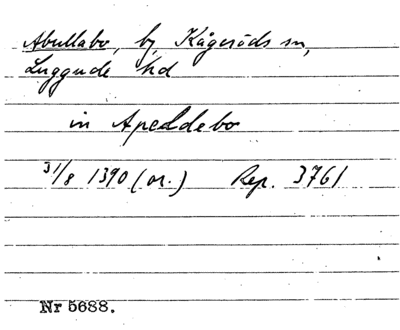 Abullabo, by, Kågeröds sn,
Luggude hd
in Apeldebo
31/8 1390 (or.) Rep. 3761
Nr 5688.